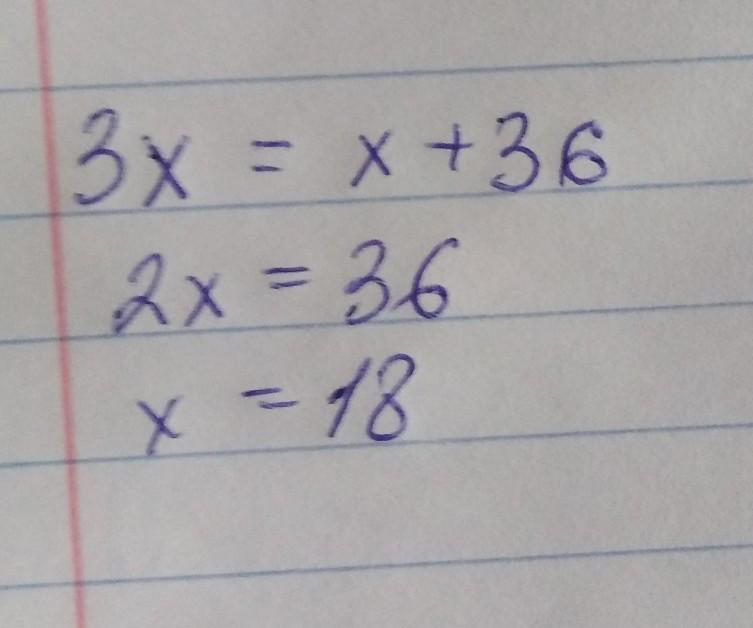 3x = x + 36
2x = 36
x = 18